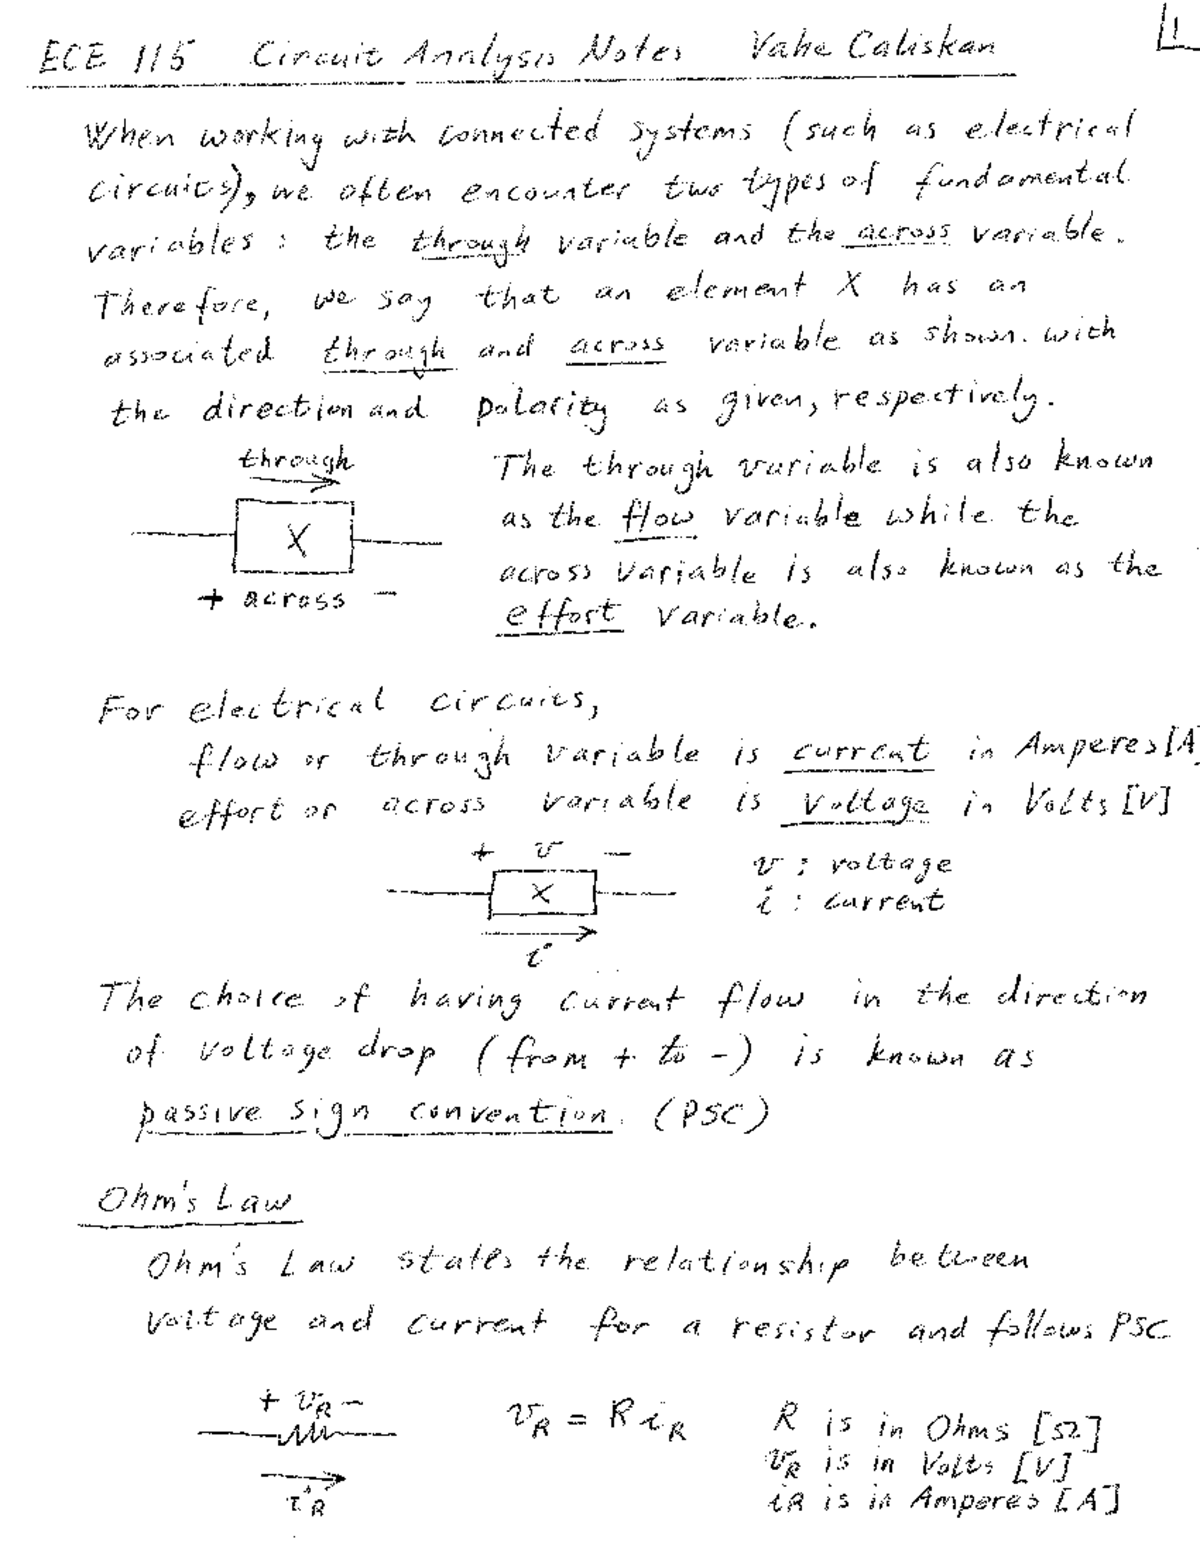 ECE 115 Circuit Analysis Notes Vahe Caliskan
1
When working with connected systems (such as electrical
circuits), we often encounter two types of fundamental
variables : the through variable and the across variable.
Therefore, we say that an element X has an
associated through and across variable as shown. with
the direction and polarity as given, respectively.
through
X
+ across −
The through variable is also known
as the flow variable while the
across variable is also known as the
effort variable.
For electrical circuits,
flow or through variable is current in Amperes [A]
effort or across variable is voltage in Volts [V]
+ v −
X
i
v : voltage
i : current
The choice of having current flow in the direction
of voltage drop (from + to −) is known as
passive sign convention. (PSC)
Ohm's Law
Ohm's Law states the relationship between
voltage and current for a resistor and follows PSC
+ vR −
iR
vR = R iR
R is in Ohms [Ω]
vR is in Volts [V]
iR is in Amperes [A]